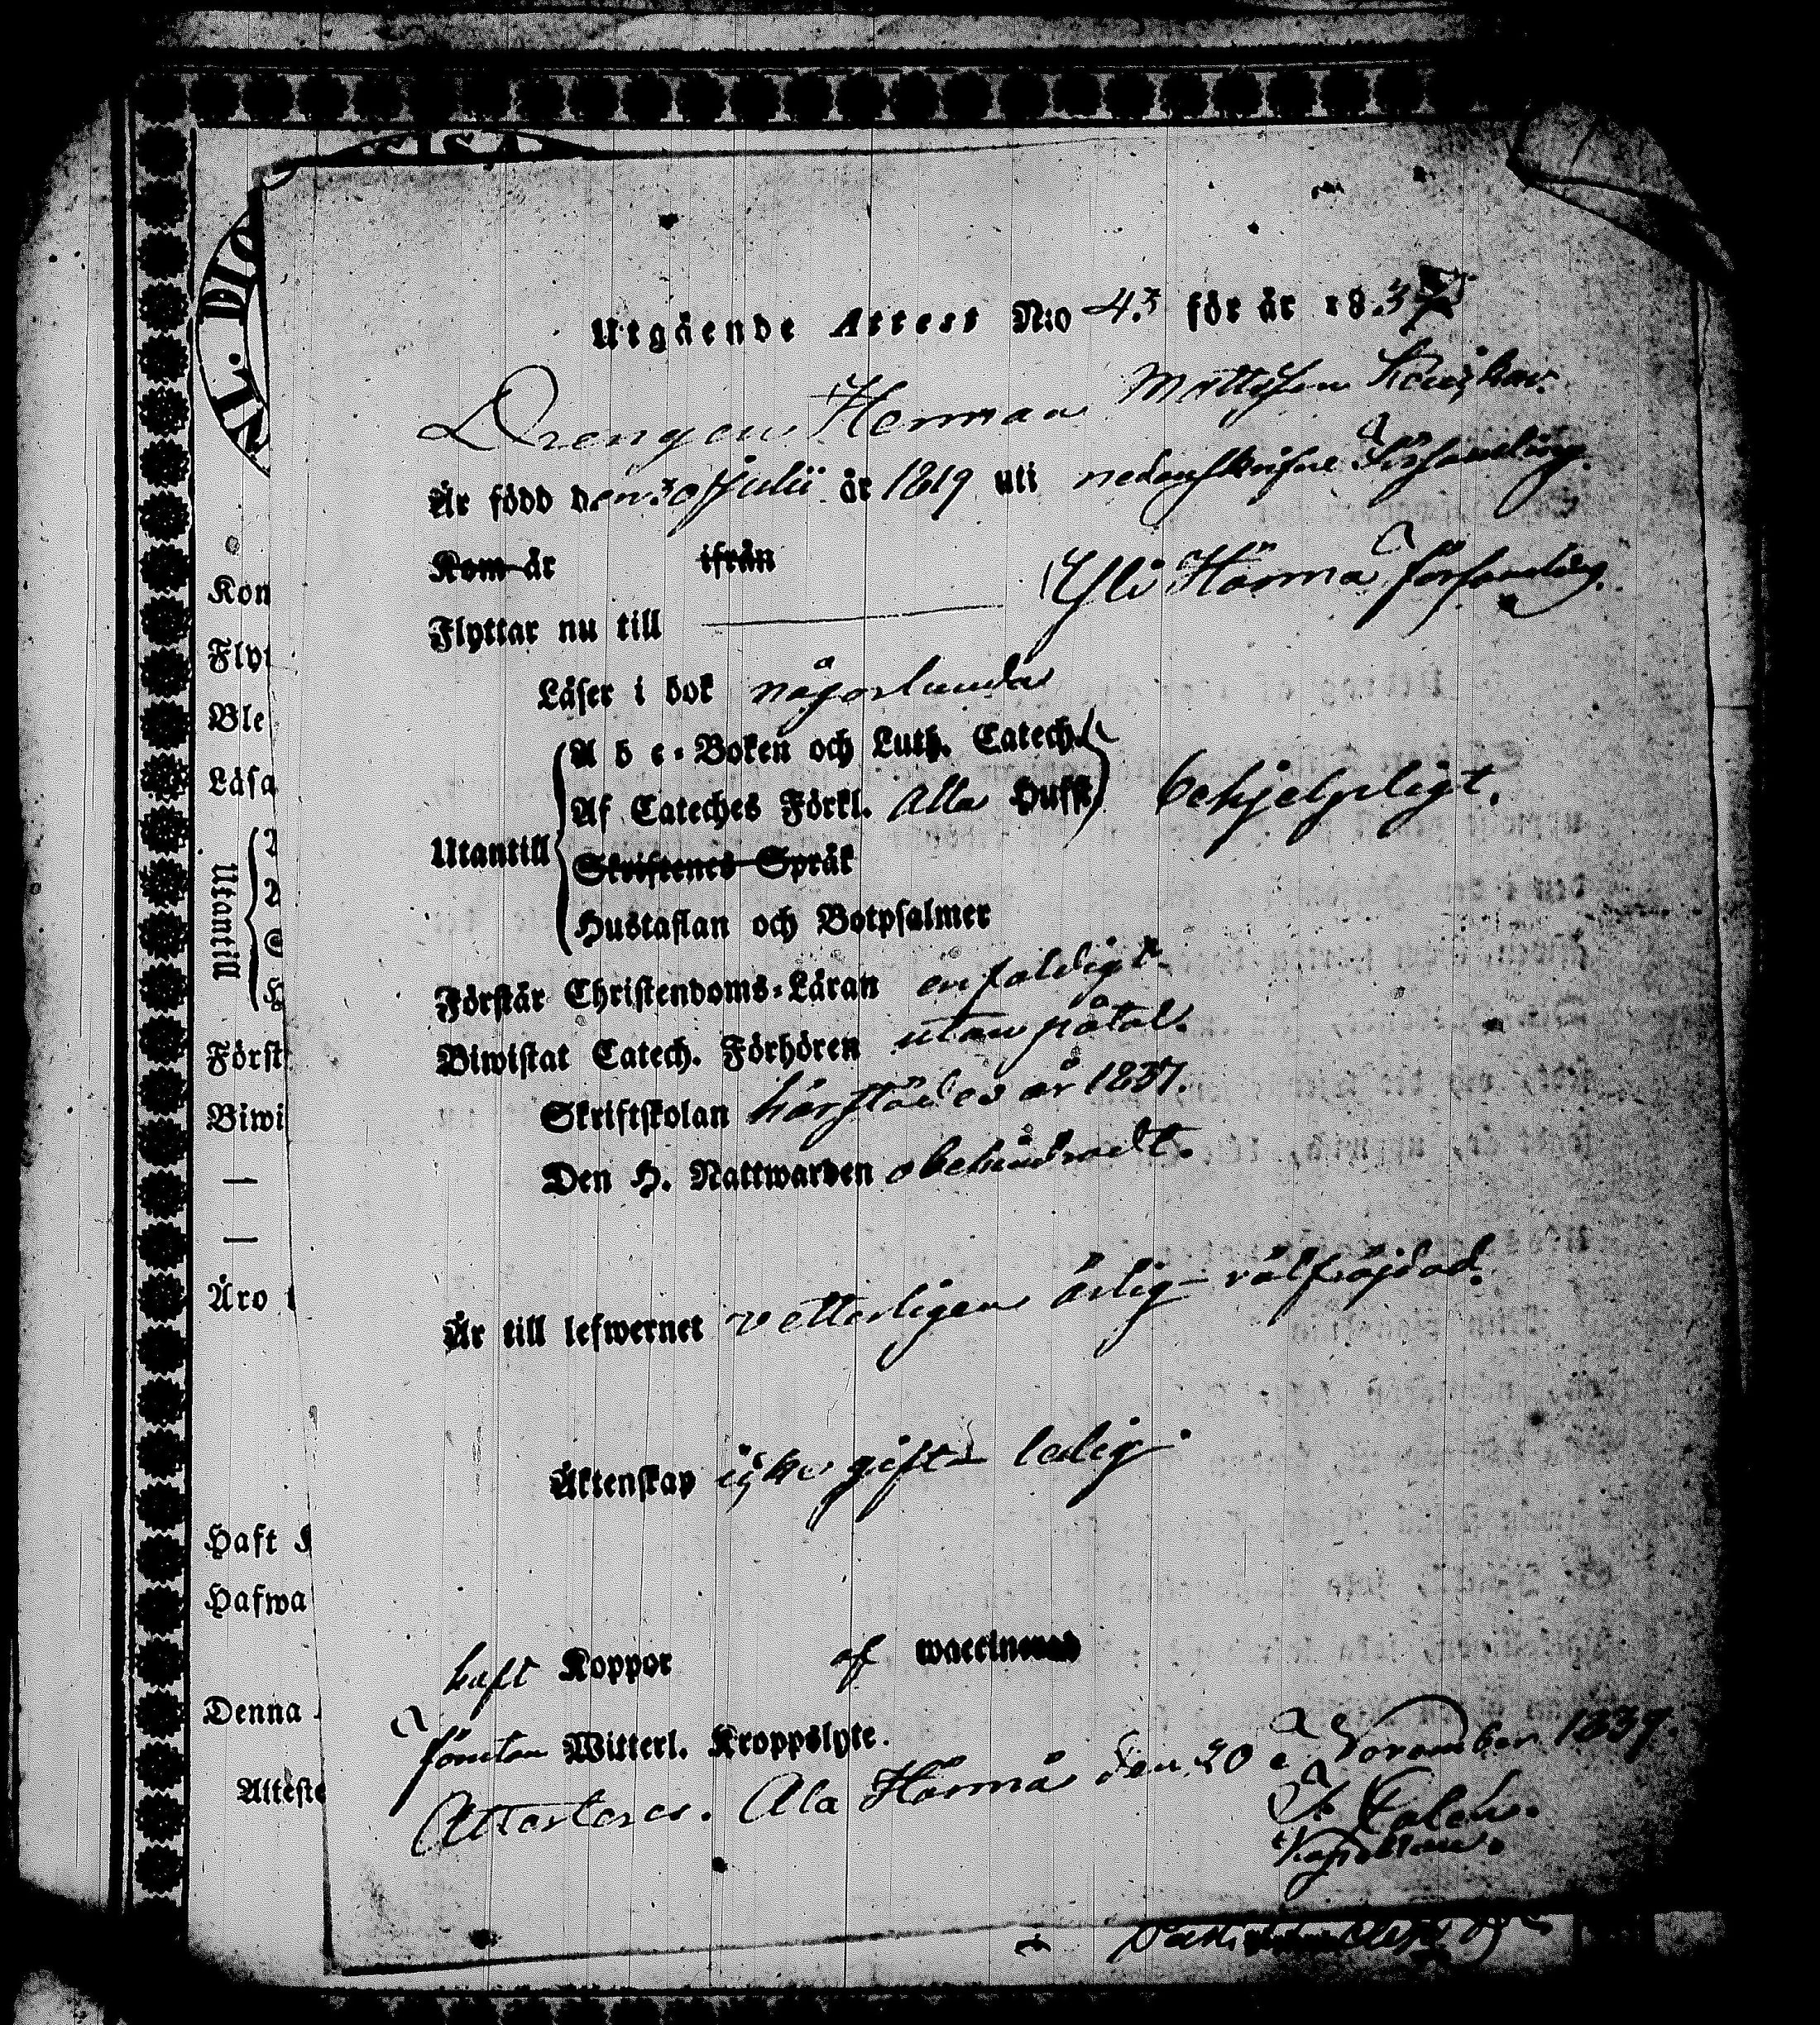 NL. DIO
Utgående Attest N:o 43 för år 183
Drengen Herman Mattsson
Är född den 30 Julii år 1819 uti nedanskrifne Församling.
Kom år ifrån
Flyttar nu till Yli Härmä församling.
Läser i bok någorlunda
Utantill
A b c-Boken och Luth. Catech.
Af Cateches Förkl. alla Husst behjelpligt.
Skriftenes Språk
Hustaflan och Botpsalmer
Förstår Christendoms-Läran enfaldigt
Biwistat Catech. Förhören utan påtal.
Skriftskolan härstädes år 1837.
Den H. Nattwarden obehindradt.
Är till lefwernet vetterligen ärlig välfrejdad.
Äktenskap icke gift ledig
haft Koppor af waccinerad
Witterl. Kroppslyte.
Attesteras. Ala Härmä den 20 November 1839.
Kapellan.
Kon
Flyt
Ble
Läsa
Utantill
Först
Biwi
—
—
Äro
Haft
Hafwa
Denna
Atteste